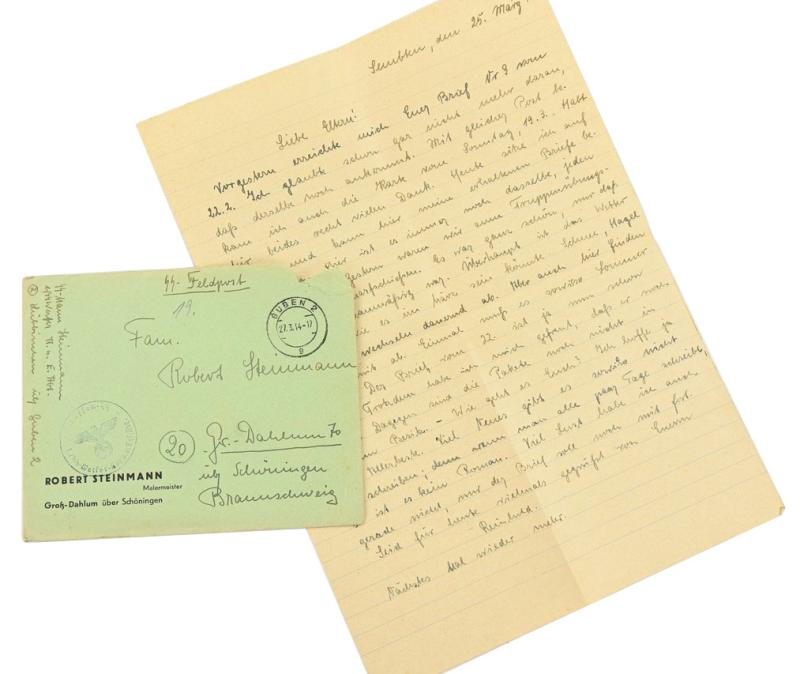 den 25. März
Liebe Eltern!
Vorgestern erreichte mich Euer Brief Nr 9 vom
22.2. Ich glaubte schon gar nicht mehr daran,
daß derselbe noch ankommt. Mit gleicher Post be-
kam ich auch die Karte vom Sonntag, 19.3. Habt
für beides recht vielen Dank. Heute sitze ich auf
und kann hier meine erhaltenen Briefe be-
Hier ist es immer noch dasselbe, jeden
gestern waren wir zum Truppenübungs-
Scharfschießen. Es war ganz schön, nur daß
war. Überhaupt ist das Wetter
wie es im März sein könnte Schnee, Hagel
wechseln dauernd ab. Aber auch hier finden
mit ab. Einmal muß es sowieso Sommer
Der Brief vom 22. ist ja nun schon
Trotzdem habe ich mich gefreut, daß er
Dagegen sind die Pakete noch nicht in
Wie geht es Euch? Ich hoffe ja
Allerbeste. Viel Neues gibt es sowieso nicht
schreiben, denn wenn man alle paar Tage schreibt,
ist es kein Roman. Viel Lust habe ich auch
gerade nicht, nur der Brief soll noch mit fort.
Seid für heute vielmals gegrüßt von Eurem
Reinhold.
Nächstes Mal wieder mehr.
SS-Feldpost
19.
GUBEN 2
27.3.44-17
Fam.
Robert Steinmann
20
Gr.-Dahlum 70
üb/ Schöningen
Braunschweig
SS-Mann Steinmann
üb/ Guben 2
ROBERT STEINMANN
Malermeister
Groß-Dahlum über Schöningen